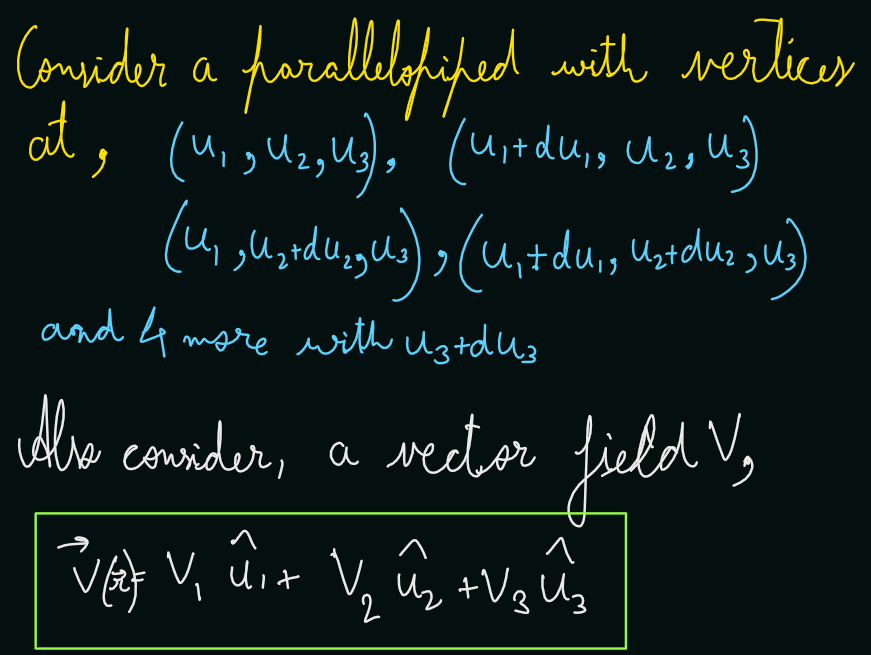 Consider a parallelopiped with vertices
at, (u₁, u₂, u₃), (u₁+du₁, u₂, u₃)
(u₁, u₂+du₂, u₃), (u₁+du₁, u₂+du₂, u₃)
and 4 more with u₃+du₃
Also consider, a vector field V,
V⃗(r⃗)= V₁ û₁ + V₂ û₂ + V₃ û₃